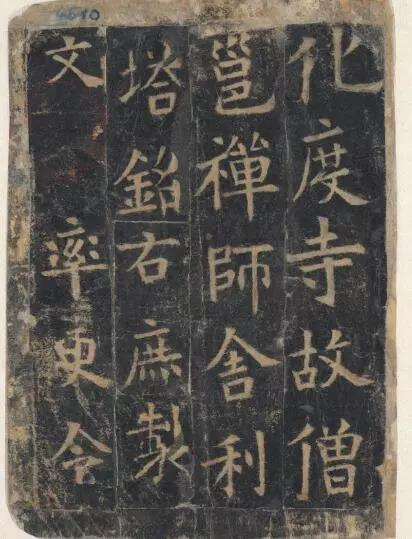 4510
化度寺故僧
邕禪師舍利
塔銘右庶製
文 率更令